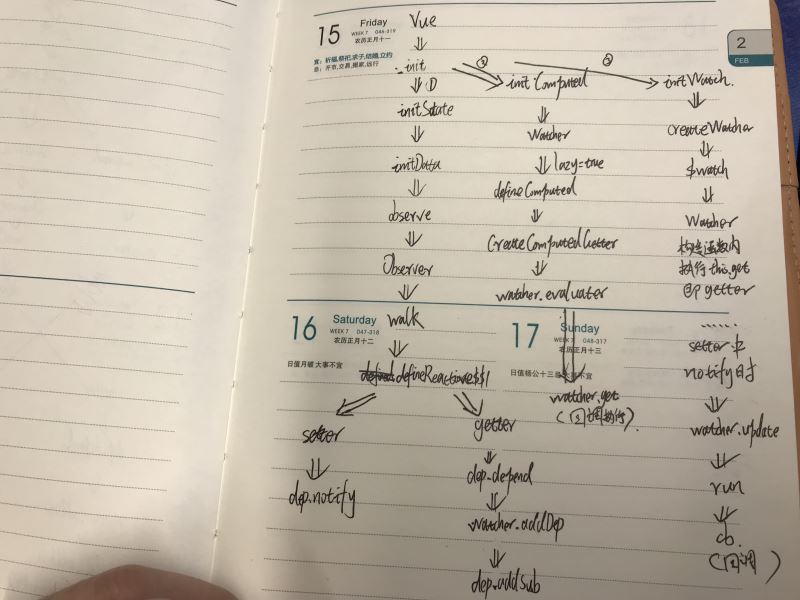 15
Friday
WEEK 7 046-319
农历正月十一
宜: 祈福,祭祀,求子,结婚,立约
忌: 开市,交易,搬家,远行
2
FEB
Vue
⇓
_init
⇓ ①
initState
⇓
initData
⇓
observe
⇓
Observer
⇓
walk
⇓
defineReactive$$1
setter
⇓
dep.notify
getter
⇓
dep.depend
⇓
watcher.addDep
⇓
dep.addSub
②
initComputed
⇓
Watcher
⇓ lazy=true
defineComputed
⇓
CreateComputedGetter
⇓
watcher.evaluater
⇓
watcher.get
(回调执行).
②
initWatch.
⇓
createWatcher
⇓
$watch
⇓
Watcher
构造函数内
执行this.get
即getter
......
setter中
notify时
⇓
watcher.update
⇓
run
⇓
cb
(回调)
16
Saturday
WEEK 7 047-318
农历正月十二
日值月破 大事不宜
17
Sunday
WEEK 7 048-317
农历正月十三
日值杨公十三忌